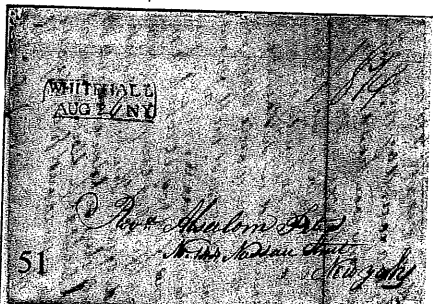 WHITEHALL
AUG 24 NY
Revd Absalom Peters
No. 144 Nassau Street
New York
51